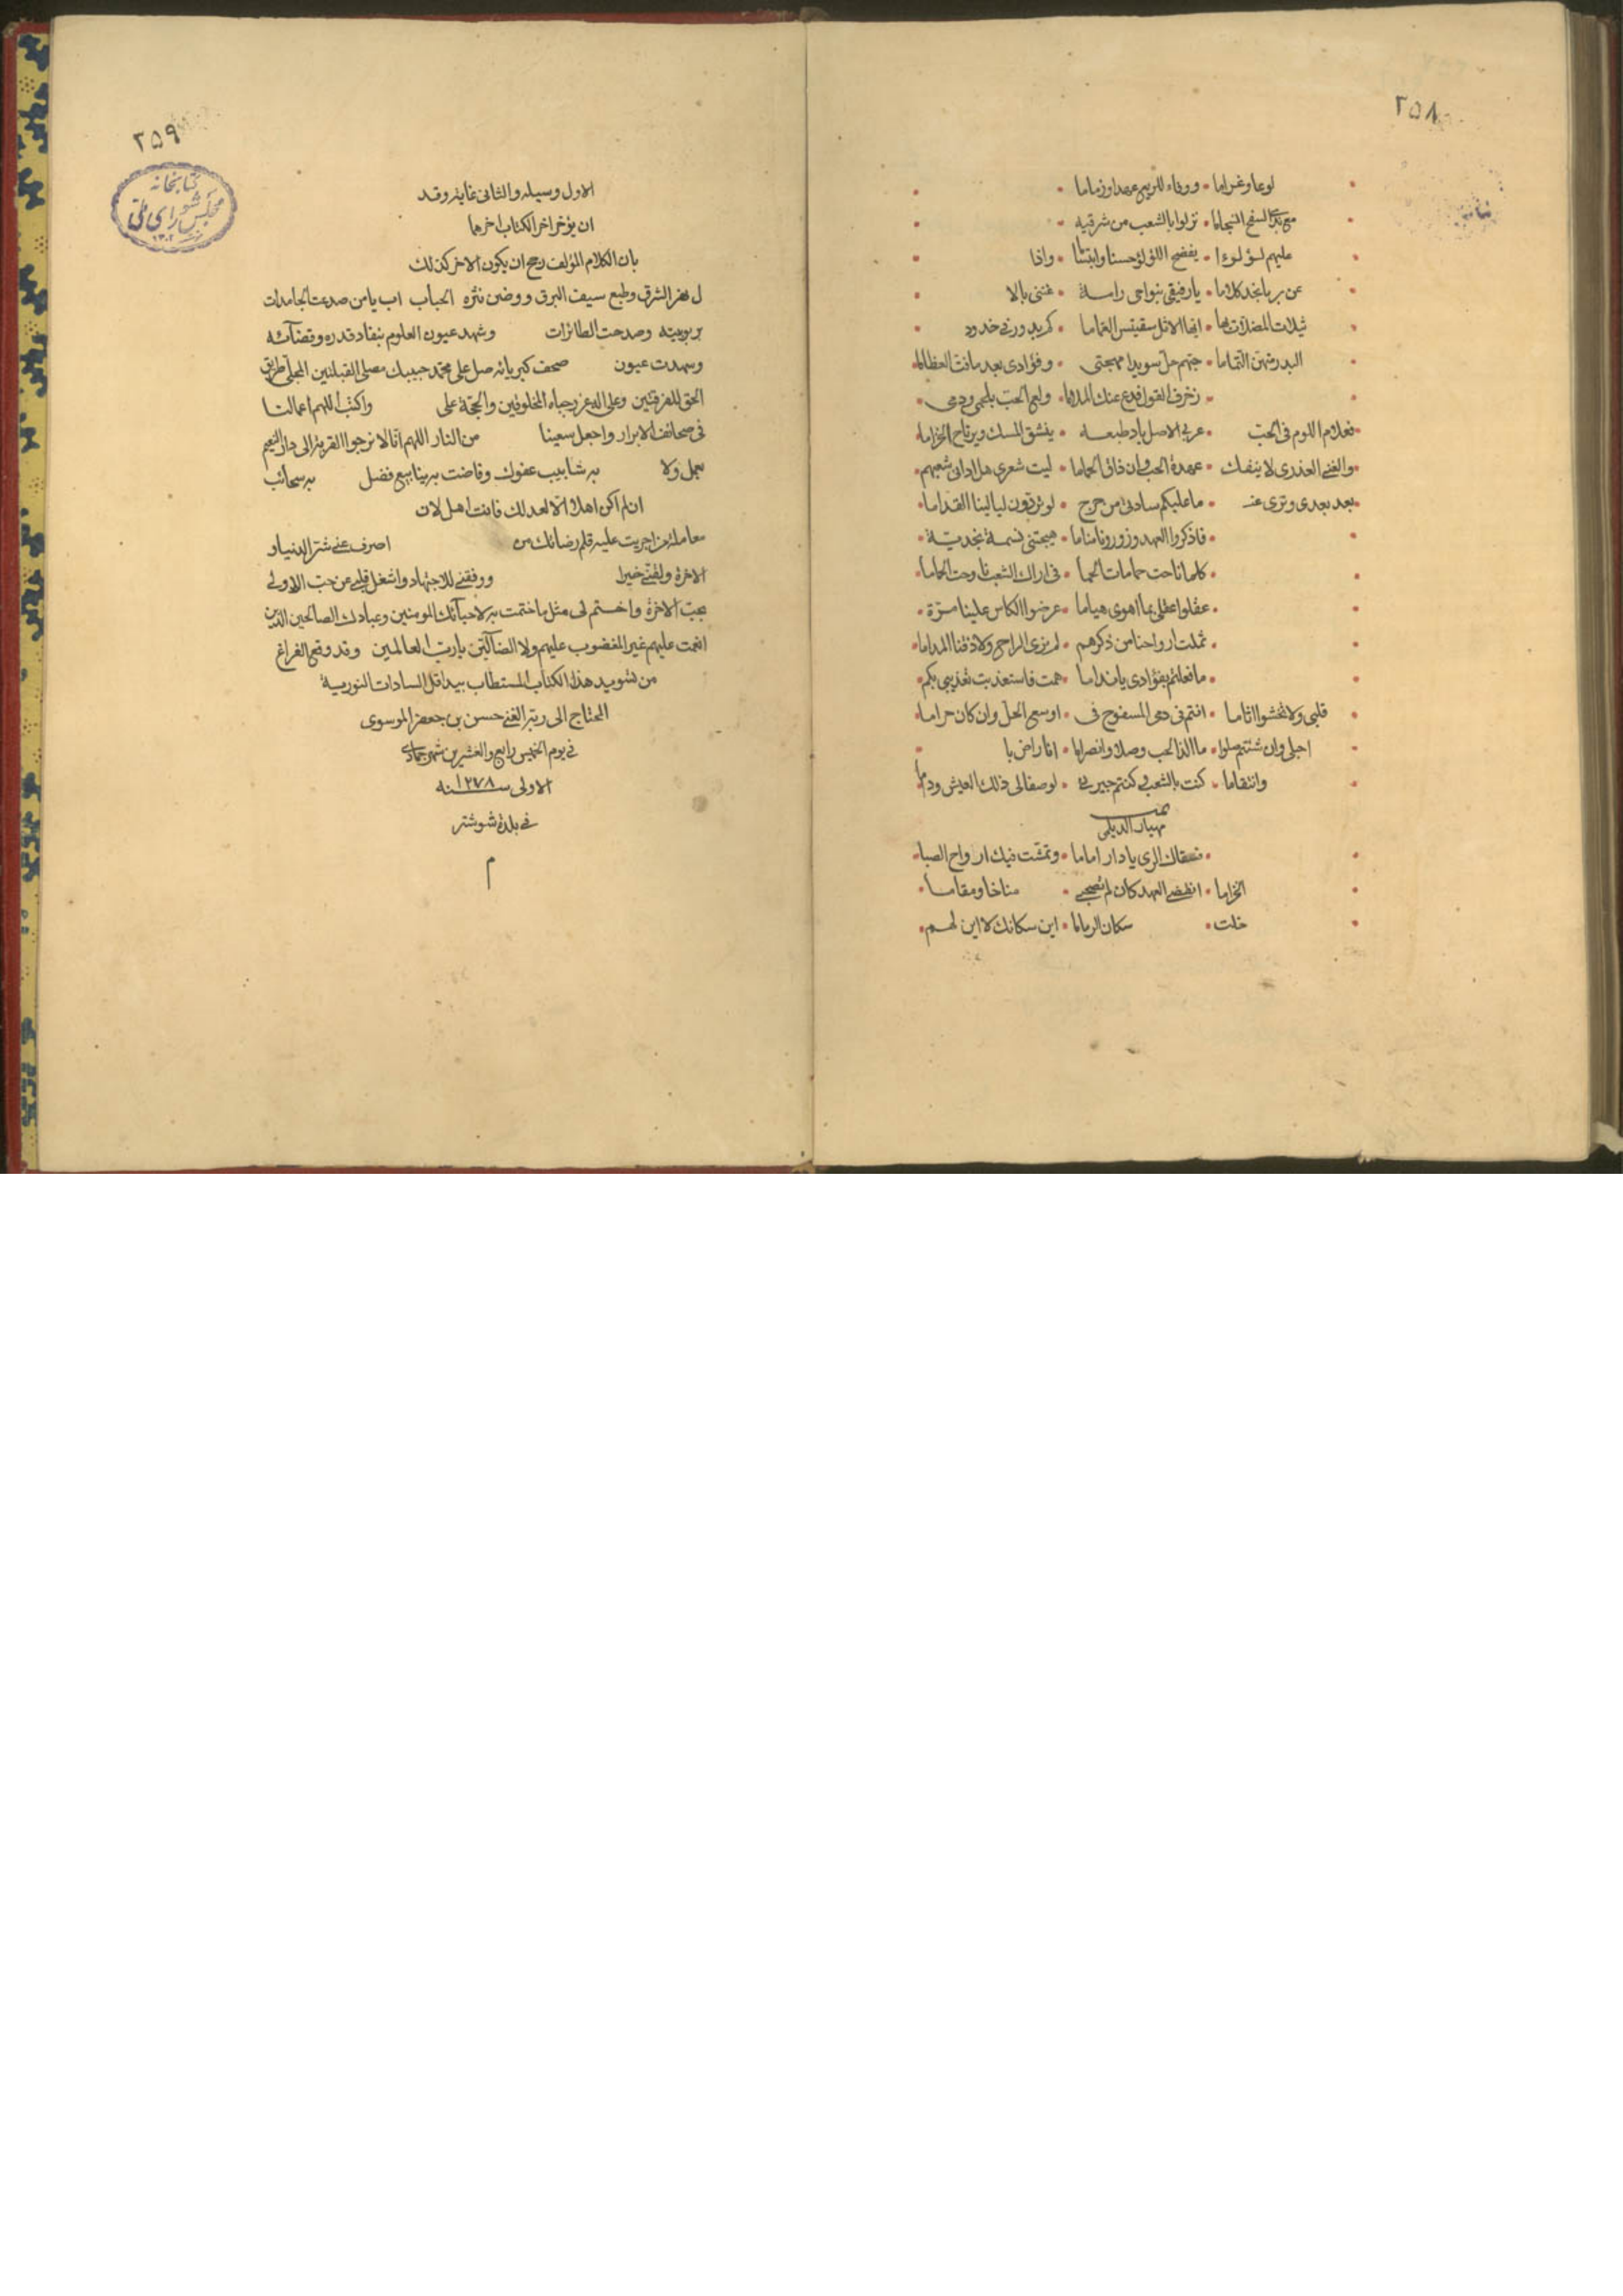 ۲۵۸
لوعا وغراما • ووفاء للربع عهدا وزماما
السفح • نزلوا بالشعب من شرقيه
عليهم لؤلوءا • يفضح اللؤلؤ حسنا وابتساما • واذا
عن ربا نجد كلاما • يا رفيقى بنواحى رامة • غننى بالا
ثيلات • ايها الاثل سقيتن الغماما • كم بدور فى خدود
البدر التماما • حبهم حل سويدا مهجتى • وفؤادى بعد ما فت العظاما
زخرف القول فدع عنك الملاما • ولع الحب بلحمى ودمى
فعلام اللوم فى الحب • عربى الاصل باد طبعه • ينشق المسك ويرتاح الخزاما
والفتى العذرى لا ينفك • عهدة الحب وان ذاق الحماما • ليت شعرى هل ادانى شعبهم
بعد بعدى وترى عنـ • ما عليكم سادتى من حرج • لو تردون ليالينا القداما
فاذكروا العهد وزورونا مناما • هيجتنى نسمة نجدية
كلما ناحت حمامات الحما • فى اراك الشعب ناوحت الحماما
عقلوا عقلى بما اهوى هياما • عرضوا الكاس علينا مرة
ثملت ارواحنا من ذكرهم • لم نرى الراح ولا ذقنا المداما
ما فعلتم بفؤادى يا نداما • همت فاستعذبت تعذيبى بكم
قلبى ولا تخشوا اثاما • انتم فى دمى المسفوح فى • اوسع الحل وان كان حراما
اجلى وان شئتم صلوا • ما الذ الحب وصلا وانصراما • انا راض با
وانتقاما • كنت بالشعب وكنتم جيرتى • لو صفا لى ذلك العيش وداما
مهيار الديلمى
فسقاك الرى يا دار اماما • وتمشت فيك ارواح الصبا
الخزاما • انقضى العهد كان لم تصحبى • مناخا ومقاما
خلت • سكان • اين سكانك لا اين لهم
۲۵۹
كتابخانه
مجلس شوراى ملى
الاول وسيله والثانى غايه وقد
ان يؤخر اخر الكتاب اخرها
بان الكلام المؤلف رجح ان يكون الاخر كذلك
الشرق وطبع سيف البرق ووضين نثره الحباب اب يا من صدعت الجامدات
بربوبيته وصدحت الطائرات وشهد عيون العلوم بنفاد قدره وقضائه
وسهدت عيون صحف كبريائه صل على محمد حبيبك مصلى القبلتين المجلى طرايق
الحق للفرقتين وعلى اله غرر جباه المخلوقين والحجة على واكتب اللهم اعمالنا
فى صحائف الابرار واجعل سعينا من النار اللهم انا لا نرجوا القربة الى دار النعيم
بعمل ولا به شابيب عفوك وفاضت به ينابيع فضل به سحائب
ان لم اكن اهلا الا لعدلك فانت اهل لان
معاملة من اجريت عليه قلم رضائك من اصرف عنى شر الدنيا و
الاخرة ولقنى خيرا ووفقنى للاجتهاد واشغل قلبى عن حب الاولى
بحب الاخرة واختم لى مثل ما ختمت به لاحبائك المومنين وعبادك الصالحين الذين
انعمت عليهم غير المغضوب عليهم ولا الضالين يا رب العالمين وقد وقع الفراغ
من تسويد هذا الكتاب المستطاب بيد اقل السادات النورية
المحتاج الى ربه الغنى حسن بن جعفر الموسوى
فى يوم الخميس رابع والعشرين شهر جمادى
الاولى سنه ۱۲۷۸
فى بلدة شوشتر
م